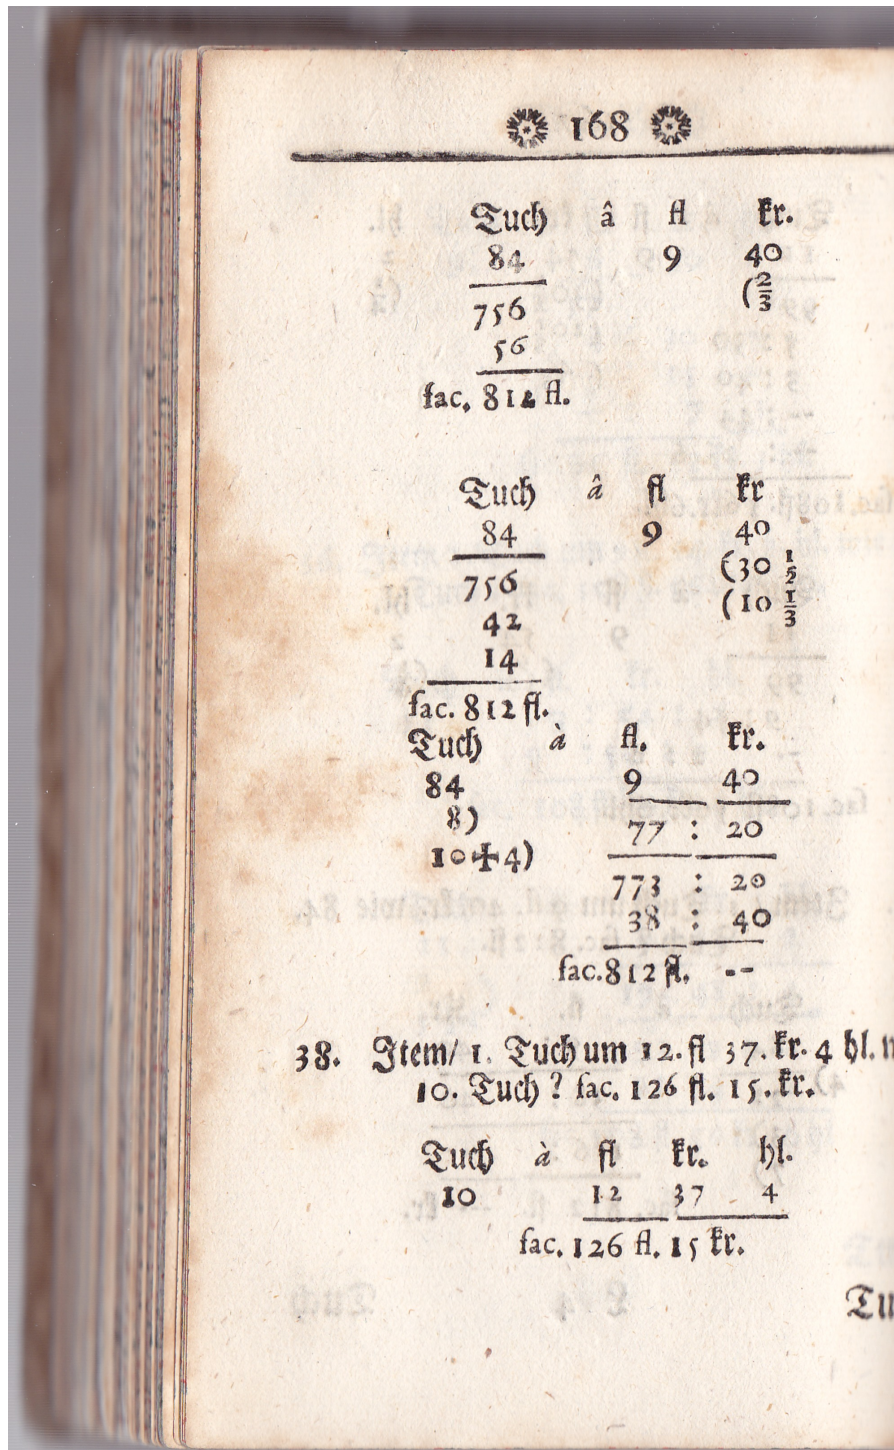 168
Tuch â fl kr.
84 9 40
(2/3
756
56
fac. 812 fl.
Tuch â fl kr
84 9 40
(30 1/2
756
(10 1/3
42
14
fac. 812 fl.
Tuch à fl. kr.
84 9 40
8) 77 : 20
10+4)
773 : 20
38 : 40
fac. 812 fl. --
38. Item/ 1. Tuch um 12. fl 37. kr. 4 hl.
10. Tuch? fac. 126 fl. 15. kr.
Tuch à fl kr. hl.
10 12 37 4
fac. 126 fl. 15 kr.
Tu